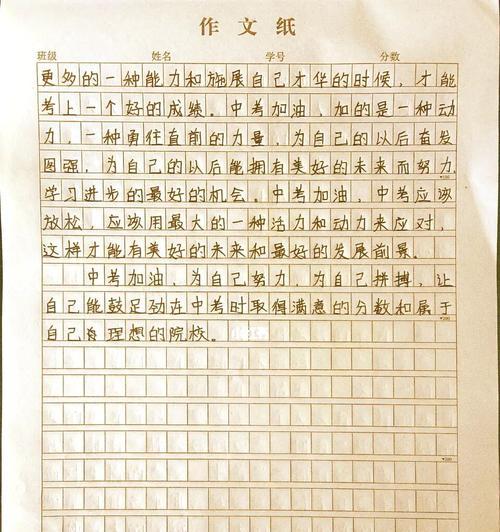 作文纸
班级 姓名 学号 分数
更多的一种能力和施展自己才华的时候，才能
考上一个好的成绩。中考加油，加的是一种动
力，一种勇往直前的力量，为自己的以后奋发
图强，为自己的以后能拥有美好的未来而努力
学习进步的最好的机会。中考加油，中考应该
放松，应该用最大的一种活力和动力来应对，
这样才能有美好的未来和最好的发展前景。
中考加油，为自己努力，为自己拼搏，让
自己能鼓足劲在中考时取得满意的分数和属于
自己理想的院校。